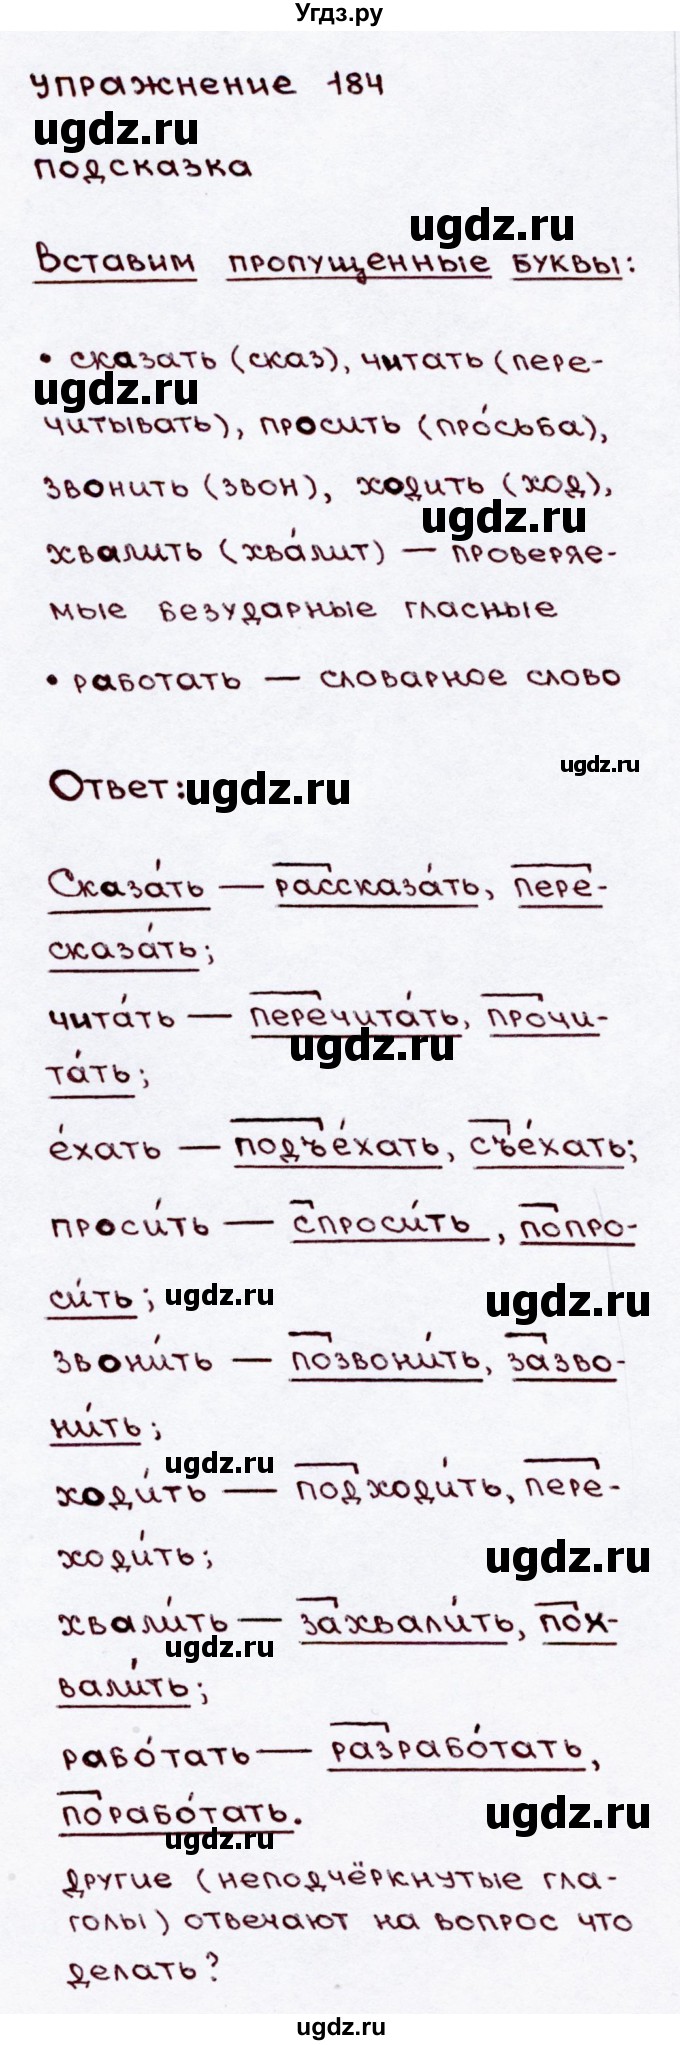 Угдз.ру
упражнение 184
ugdz.ru
подсказка
ugdz.ru
Вставим пропущенные буквы:
• сказать (сказ), читать (пере-
ugdz.ru
читывать), просить (про́сьба),
звонить (звон), ходить (ход),
ugdz.ru
хвалить (хва́лит) — проверяе-
мые безударные гласные
• работать — словарное слово
ugdz.ru
Ответ:
ugdz.ru
Сказа́ть — рассказа́ть, пере-
сказа́ть;
чита́ть — перечита́ть, прочи-
ugdz.ru
та́ть;
е́хать — подъе́хать, съе́хать;
проси́ть — спроси́ть, попро-
си́ть;
ugdz.ru
ugdz.ru
звони́ть — позвони́ть, зазво-
ни́ть;
ugdz.ru
ходи́ть — подходи́ть, пере-
ходи́ть;
ugdz.ru
хвали́ть — захвали́ть, пох-
ugdz.ru
вали́ть;
рабо́тать — разрабо́тать,
порабо́тать.
ugdz.ru
ugdz.ru
другие (неподчёркнутые гла-
голы) отвечают на вопрос что
делать?
ugdz.ru